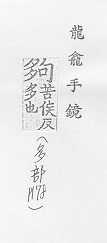 龍龕手鏡
夠
苦侯反
多也
(多部
)